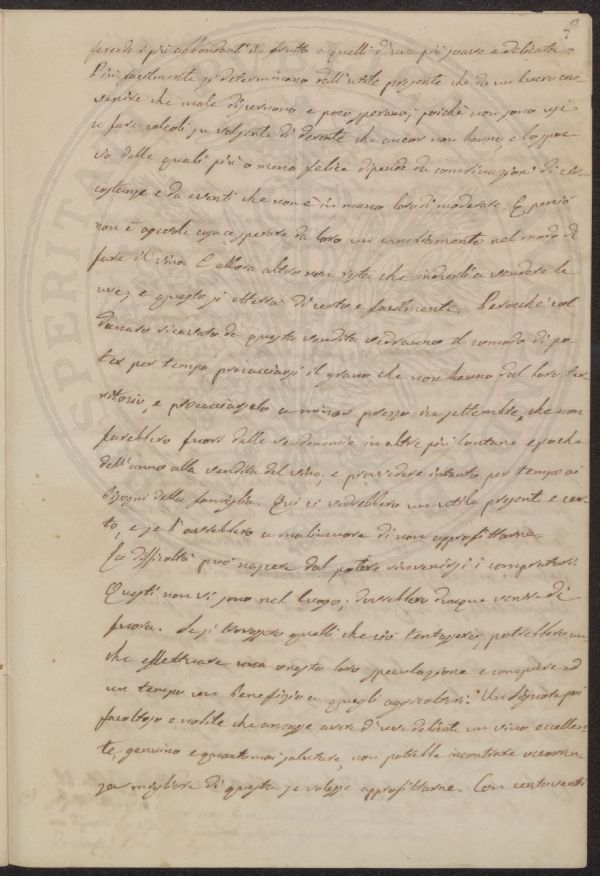 7
ferendo i più abbondanti in frutto a quelli d'uva più soave e delicata.
Più facilmente si determinano dall'utile presente che da un lucro av-
venire che male discernono e poco sperano; poichè non sono usi
a fare calcoli su valsente di derrate che ancor non hanno, e lo spac-
cio delle quali più o meno felice dipende da combinazioni di cir-
costanze e da eventi che non è in mano loro di moderare. E perciò
non è agevole cosa sperare da loro un cambiamento nel modo di
fare il vino. E allora altro non resta che indurli a vendere le
uve; e questo si otterrà di certo e facilmente. Perocchè col
danaro ricavato da questa vendita vedranno il comodo di po-
ter per tempo procacciarsi il grano che non hanno dal loro ter-
ritorio, e procacciarselo a minor prezzo in settembre, che non
farebbero fuori delle vendemmie in altre più lontane epoche
dell'anno alla vendita del vino, e provvedere intanto per tempo ai
bisogni della famiglia. Qui ci vedrebbero un utile presente e cer-
to, e se l'avrebbero a malincuore di non approfittarne.
La difficoltà può nascere dal potere rinvenirsi i compratori.
Questi non vi sono nel luogo; dovrebbero dunque venire di
fuora. Se si trovassero quelli che ciò tentassero, potrebbero an-
che effettuare una onesta loro speculazione e compiere ad
un tempo un benefizio a quegli agricoltori. Un signore poi
facoltoso e nobile che amasse avere d'uve delicate un vino eccellen-
te, genuino e quanto mai salutare, non potrebbe incontrare occorren-
za migliore di questa se volesse approfittarne. Con centoventi
SPERITA